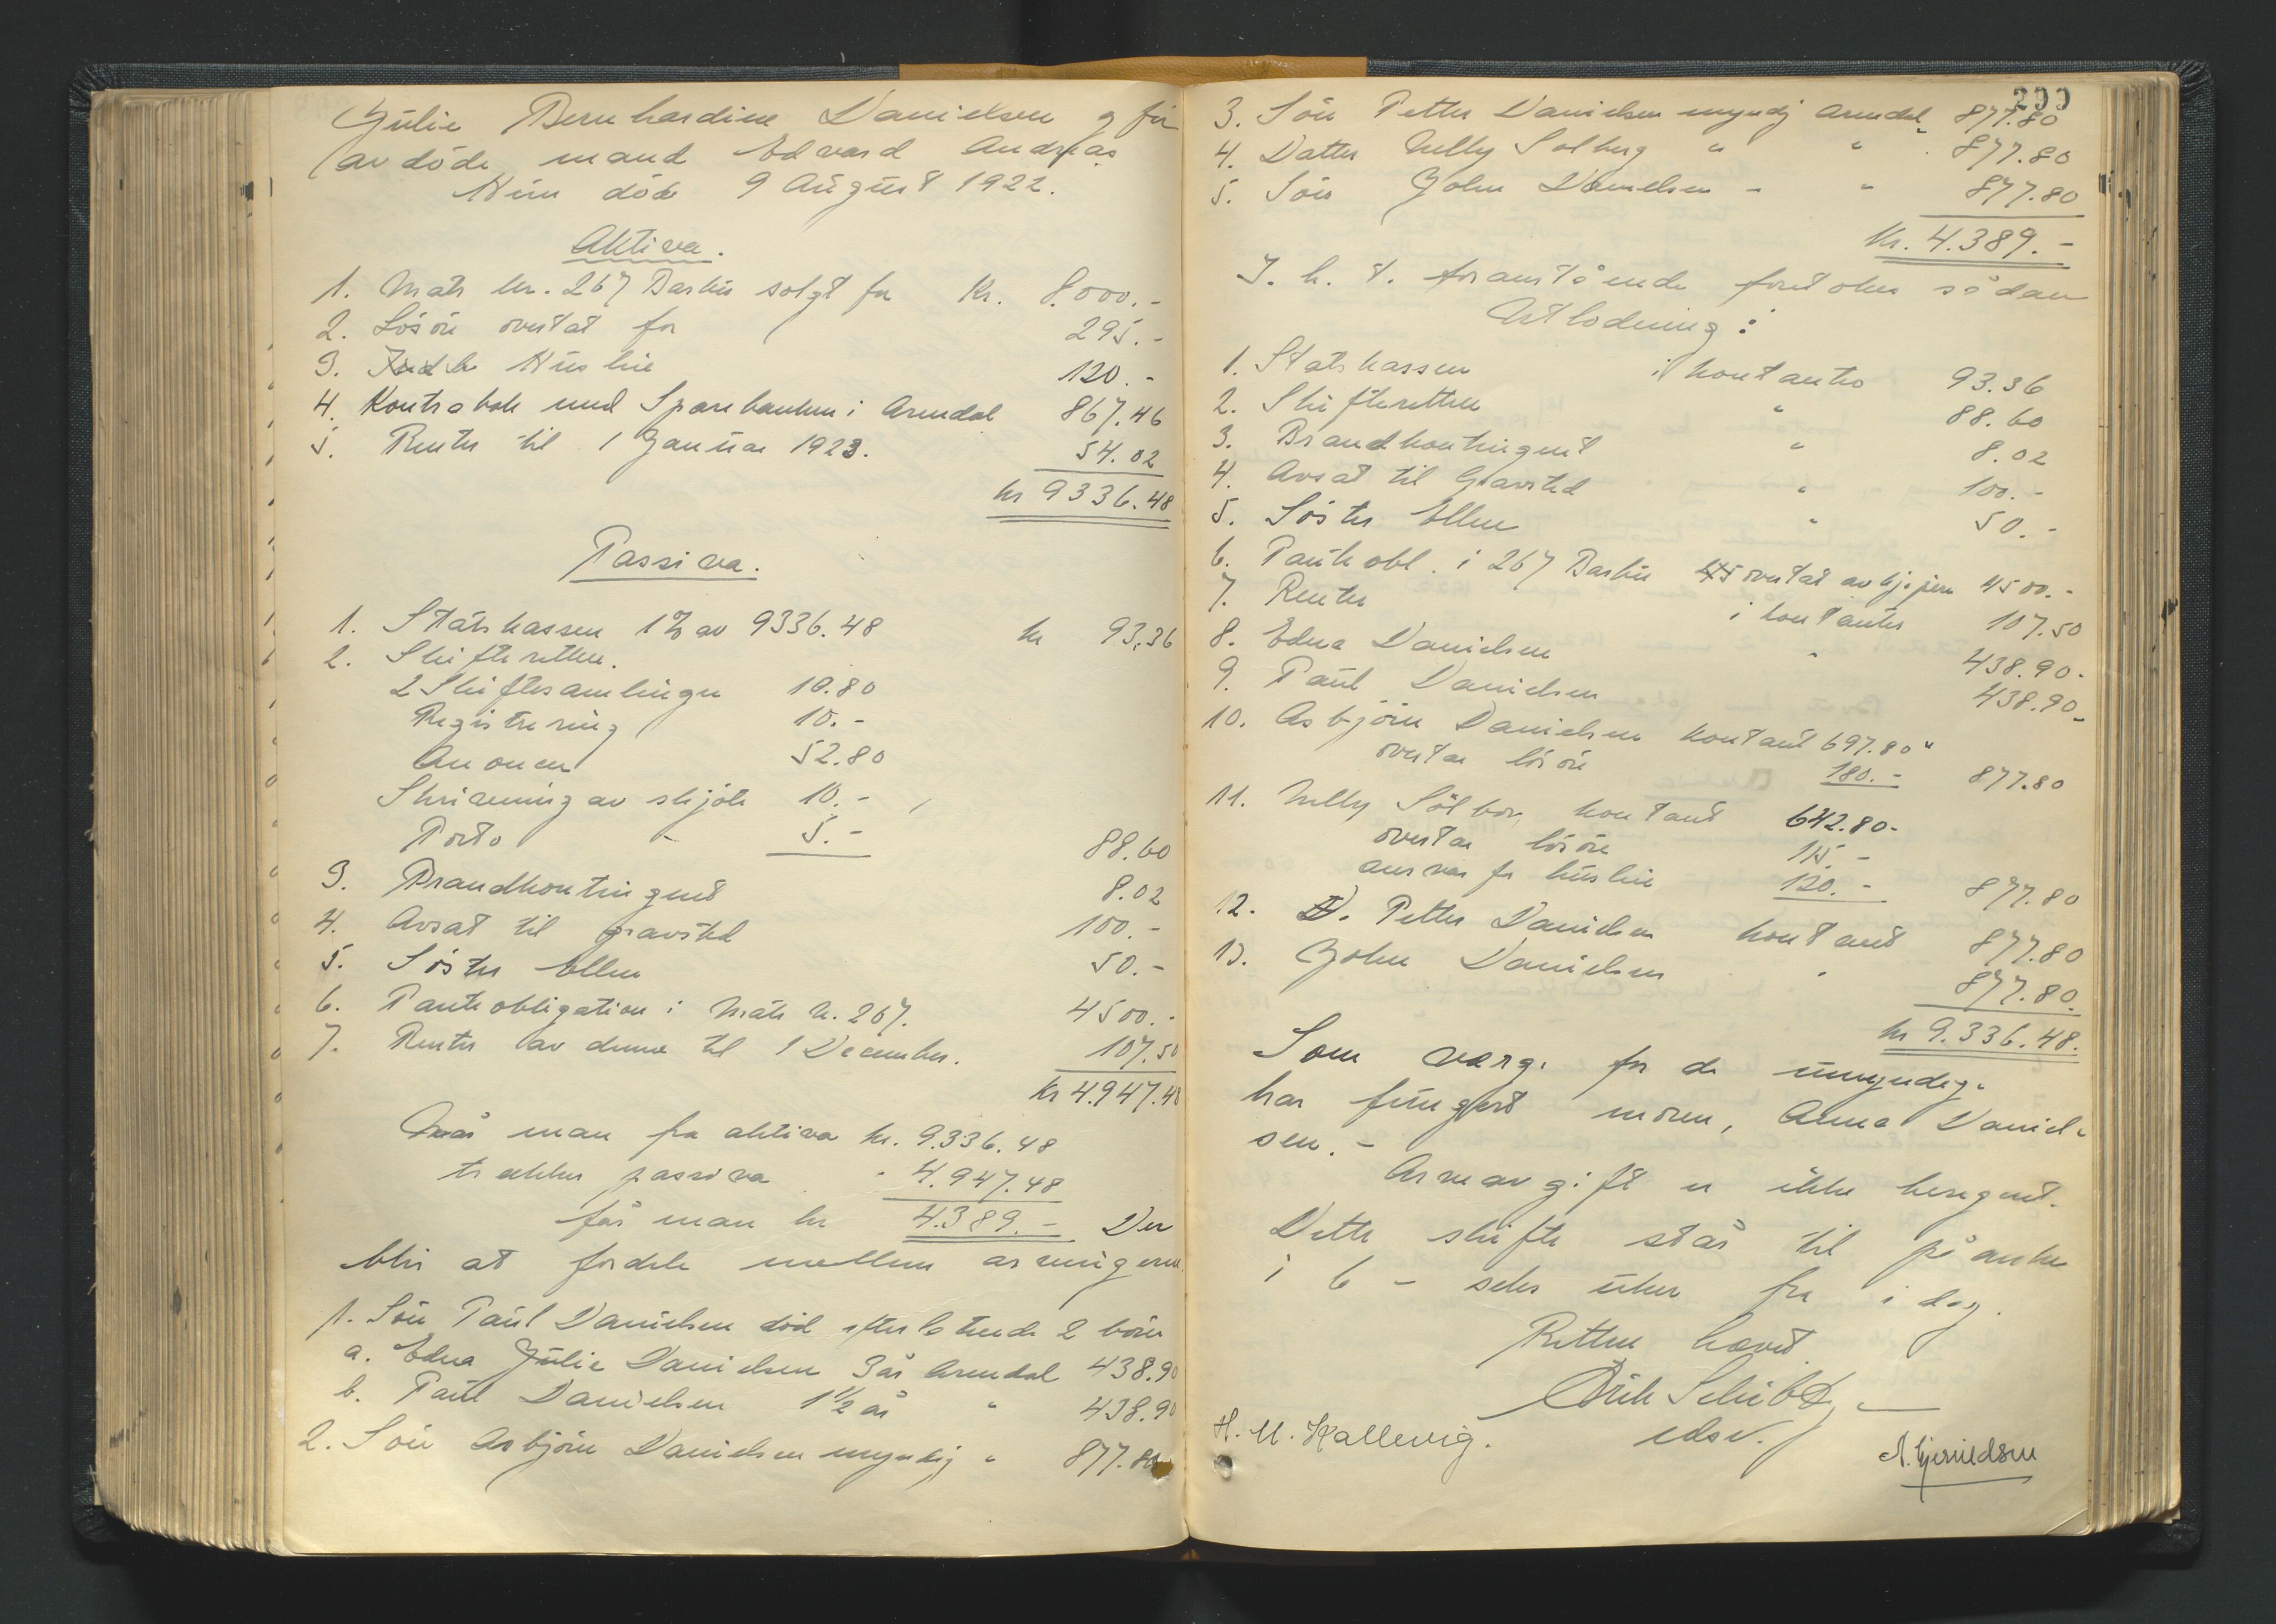 Julie Bernhardine Danielsen g for
avdöde mand Edvard Andreas
Hun döde 9 August 1922.
Aktiva.
1. Matr nr. 267 Barbu solgt for Kr. 8.000.-
2. Lösöre overtat for 295.-
3. Husleie 120.-
4. Kontrabok med Sparebanken i Arendal 867.46
5. Renter til 1 Januar 1923. 54.02
kr 9336.48
Passiva.
1. Statskassen 1% av 9336.48 kr 93.36
2. Skifteretten.
2 Skiftesamlinger 10.80
Registrering 10.-
Anoncer 52.80
Skrivning av skjöte 10.-
Porto - 5.- 88.60
3. Brandkontingent 8.02
4. Avsat til gravsted 100.-
5. Söster Ellen 50.-
6. Panteobligation i Matr n. 267. 4500.-
7. Renter av denne til 1 December. 107.50
Kr 4.947.48
Når man fra aktiva kr. 9.336.48
trækker passiva " 4.947.48
får man kr 4.389.- Der
blir at fordele mellem arvingerne
1. Sön Paul Danielsen död efterlatende 2 börn
a. Edna Julie Danielsen 3 år Arendal 438.90
b. Paul Danielsen 1 1/2 år " 438.90
2. Sön Asbjörn Danielsen myndig " 877.80
200
3. Sön Petter Danielsen myndig Arendal 877.80
4. Datter Nelly Solberg " " 877.80
5. Sön John Danielsen - " 877.80
Kr. 4.389.-
I. h. t. foranstående foretokes sådan
Utlodning:
1. Statskassen i kontanter 93.36
2. Skifteretten " 88.60
3. Brandkontingent " 8.02
4. Avsat til Gravsted " 100.-
5. Söster Ellen " 50.-
6. Panteobl. i 267 Barbu overtat av kjöperen 4500.-
7. Renter i kontanter 107.50
8. Edna Danielsen " 438.90.
9. Paul Danielsen 438.90
10. Asbjörn Danielsen kontant 697.80
overtar lösöre 180.- 877.80
11. Nelly Solberg kontant 642.80-
overtar lösöre 115.-
ansvar for husleie 120.- 877.80
12. Petter Danielsen kontant 877.80
13. John Danielsen " 877.80.
kr 9.336.48.
Som verge for de umyndige
har fungert moren, Anna Daniel-
sen.-
Arveavgift er ikke beregnet.
Dette skifte står til påanke
i 6 - seks uker fra i dag.
Retten hævet.
edsv.
H. M. Kallevig.